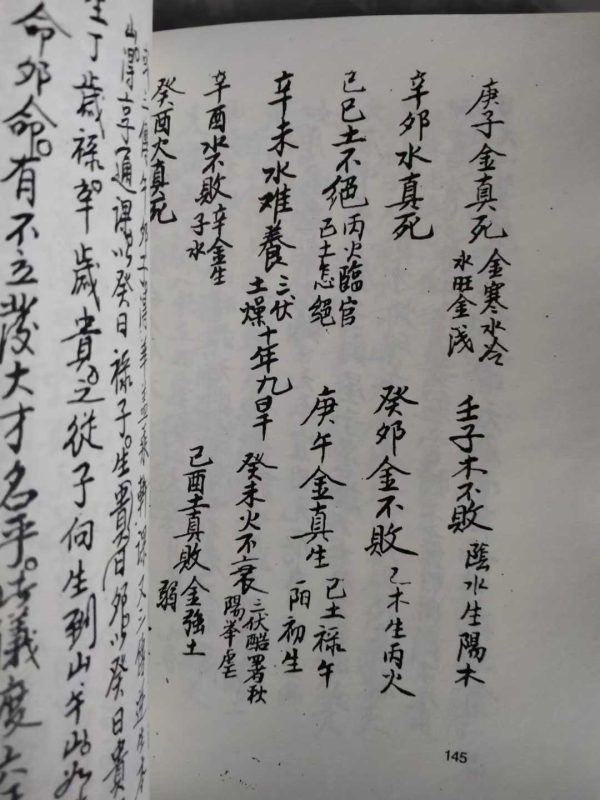 庚子金真死 金寒水冷
水旺金浅
壬子木不敗 蔭水生陽木
辛卯水真死
癸卯金不敗 乙木生丙火
己巳土不絕 丙火臨官
己土怎絕
庚午金真生 己土禄午
陌初生
辛未水难養 三伏
土燥十年九旱
癸未火不衰 三伏酷署秋
陽举虐
辛酉水不敗 辛金生
子水
己酉土真敗 金強土
弱
癸酉火真死
145
澤享通課。以癸日禄子。生貴日卯以癸日貴
生丁歲禄。卒歲貴。之從子向生到山。午此
命卯命。有不立發大才名乎。此義度六